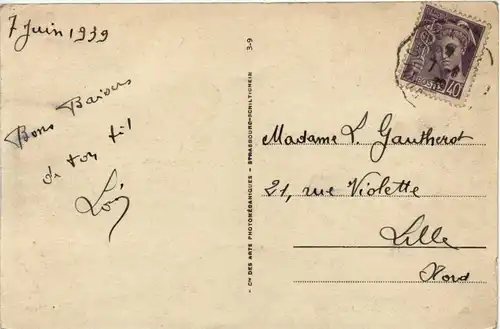 7 Juin 1939
Bons Baisers
de ton fil
Madame L. Gautherot
21, rue Violette
Lille
Nord
- Cie DES ARTS PHOTOMÉCANIQUES - STRASBOURG-SCHILTIGHEIM 3-9
40c